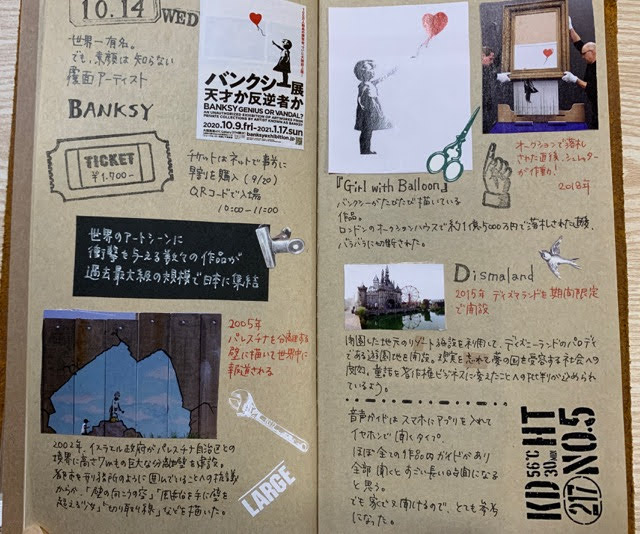 10.14 WED
世界一有名。
でも、素顔は知らない
覆面アーティスト
BANKSY
バンクシー展
天才か反逆者か
BANKSY GENIUS OR VANDAL?
2020.10.9.fri-2021.1.17.sun
banksyexhibition.jp
TICKET
¥1,700-
チケットはネットで事前に
早割を購入 (9/20)
QRコードで入場
10:00-11:00
世界のアートシーンに
衝撃を与える数々の作品が
過去最大級の規模で日本に集結
2005年
パレスチナを分離する
壁に描いて世界中に
報道される
2002年、イスラエル政府がパレスチナ自治区との
境界に高さ7mもの巨大な分離壁を建設。
囲んでいることへの抗議
からか、「壁の向こうの空」「風船を手に壁を
越える少女」「切り取り線」などを描いた。
LARGE
『Girl with Balloon』
バンクシーがたびたび描いている
作品。
ロンドンのオークションハウスで約1億5000万円で落札された直後、
バラバラに切断された。
オークションで落札
された直後、シュレッダー
が作動!
2018年
Dismaland
2015年 ディズマランドを期間限定
で開設
閉園した地元のリゾート施設を利用して、ディズニーランドのパロディ
である遊園地を開設。現実を忘れて夢の国を享受する社会への
風刺、童話を著作権ビジネスに変えたことへの批判が込められ
ているよう。
音声ガイドはスマホにアプリを入れて
イヤホンで聞くタイプ。
ほぼ全ての作品内ガイドがあり
全部聞くとすごい長い時間になる
と思う。
でも家でも聞けるので、とても参考
になった。
KD 56℃ 30MIN HT
217 NO.5